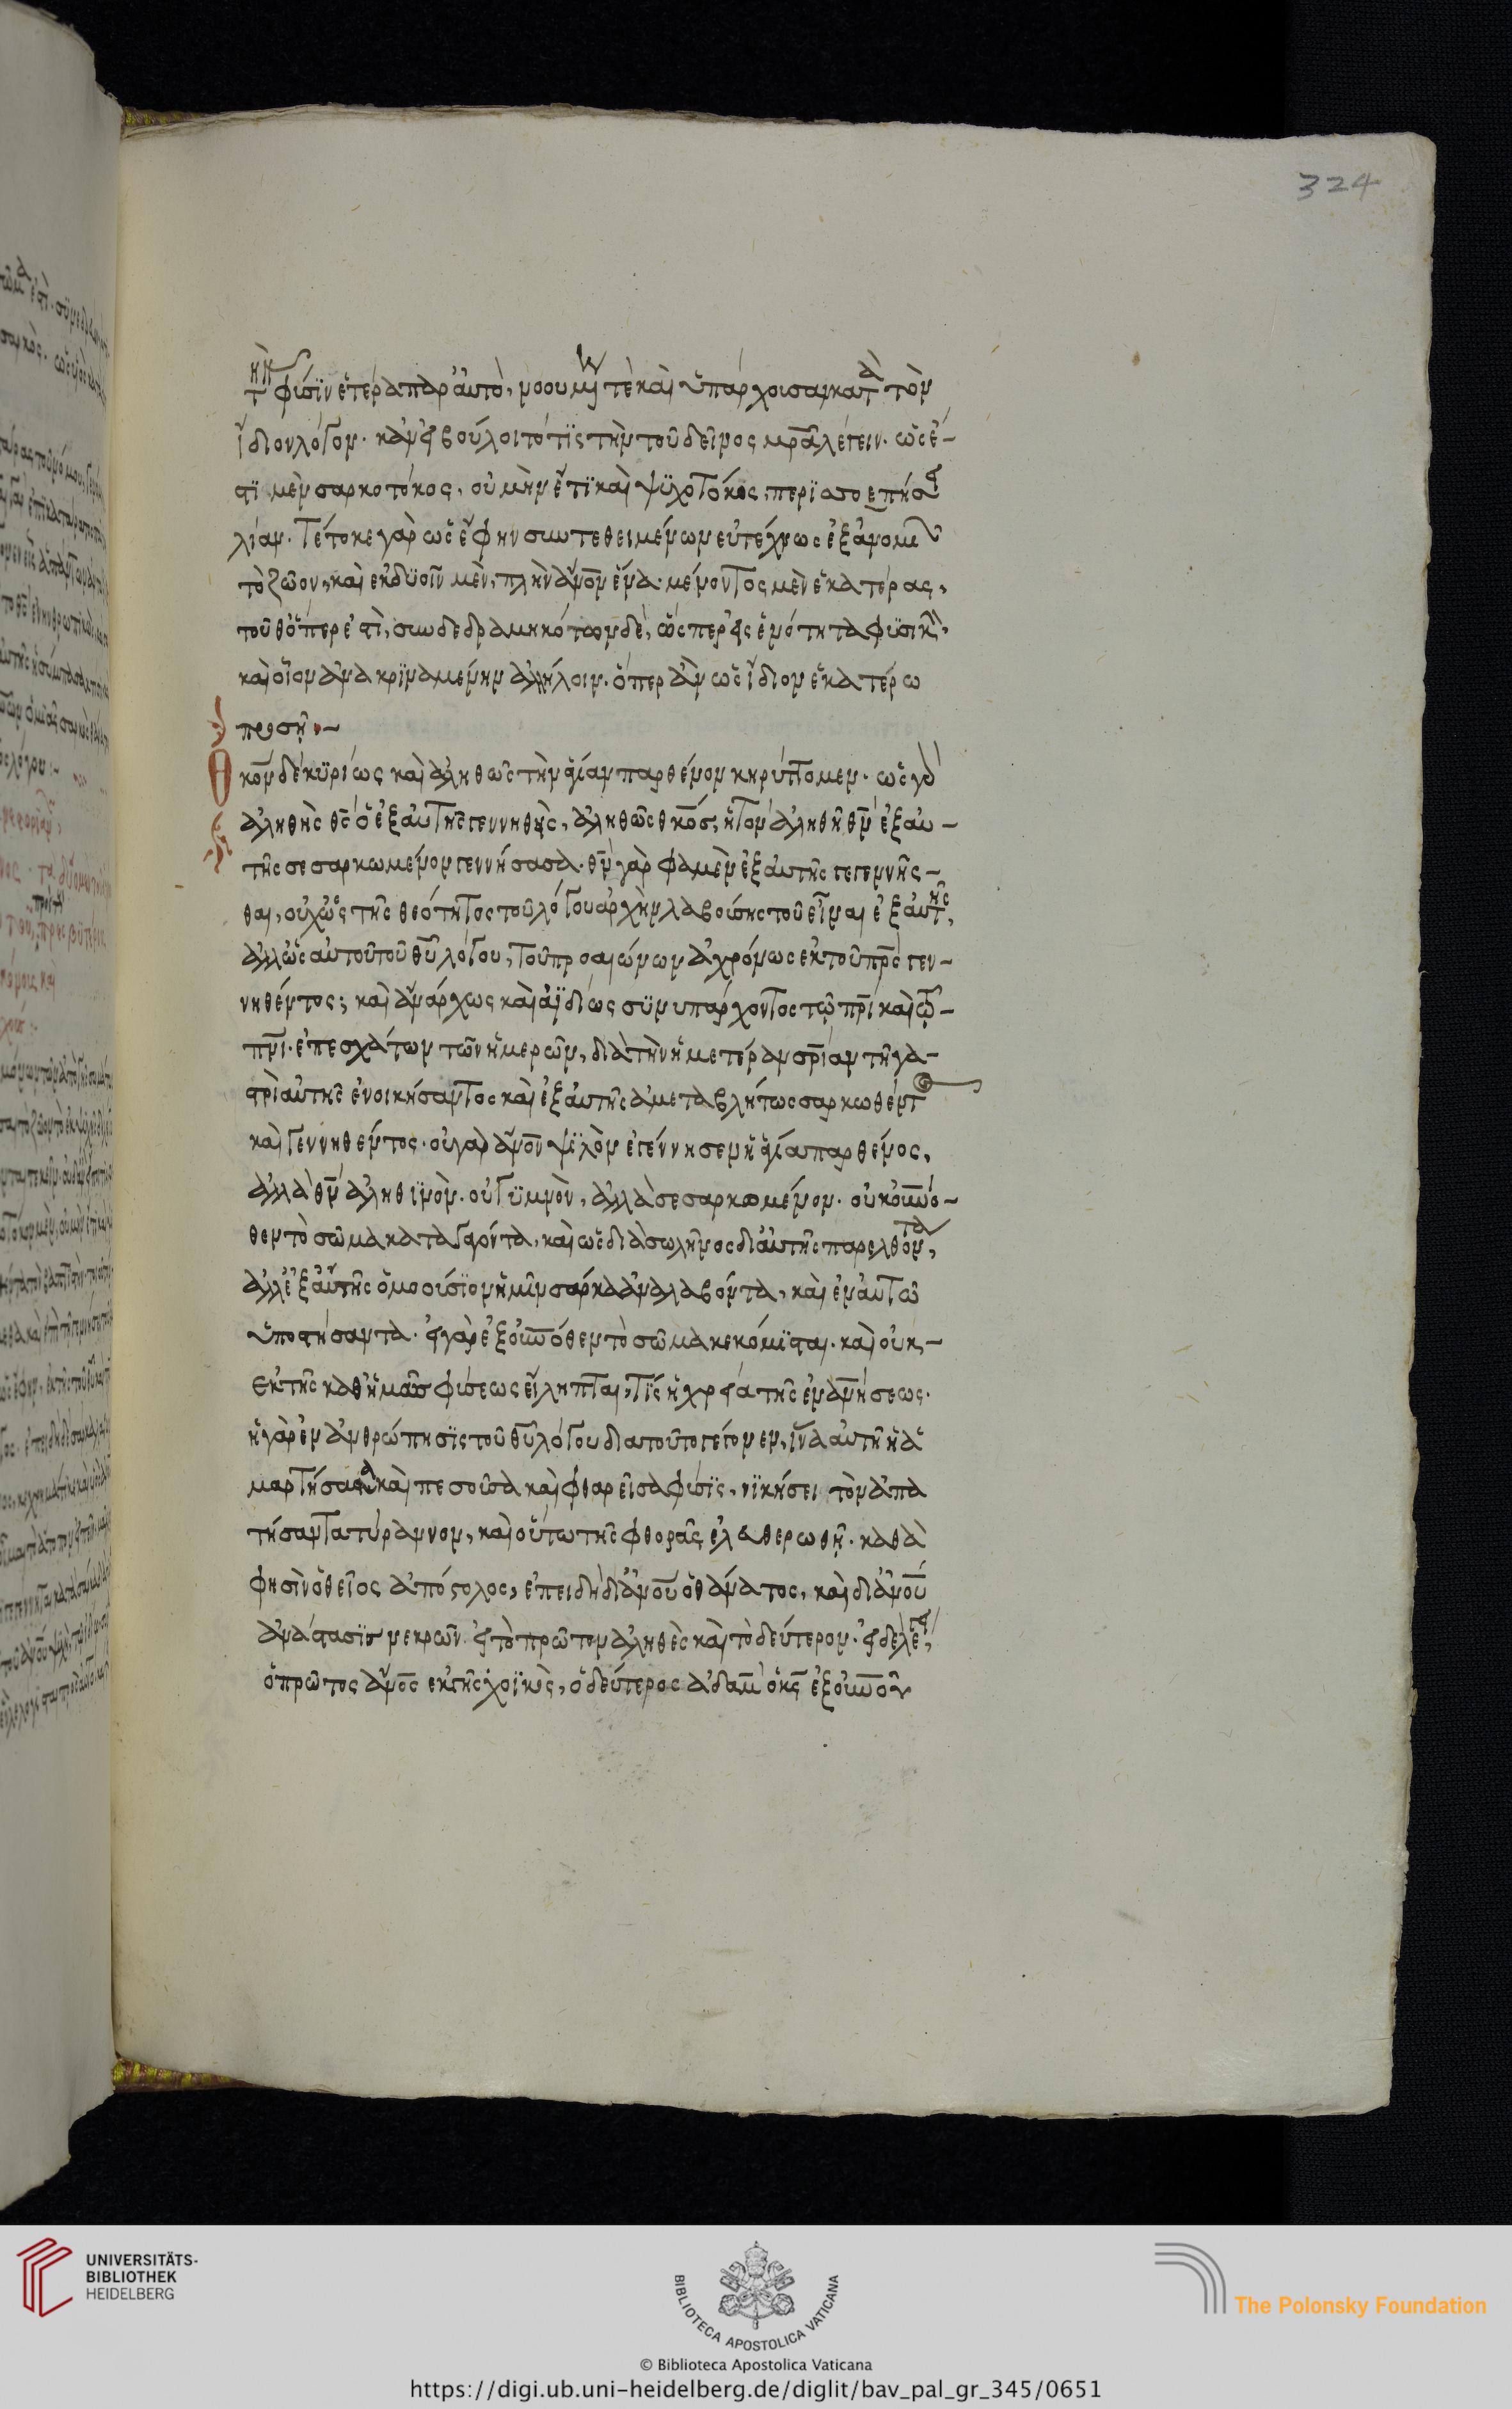 324
τὴν φύσϊν ἑτέρα παρ' αὐτὸ, νοουμένη τὲ καὶ ὑπάρχουσαν κατὰ τὸν
ἴδιον λόγον. κἂν εἰ βούλοιτό τϊς τὴν τοῦ δεῖνος μρ̅α λέγειν. ὡς ἔ-
στϊ μὲν σαρκοτόκος, οὐ μὴν ἔτϊ καὶ ψϋχοτόκος,
λίαν. τέτοκε γὰρ ὡς ἔφην συντεθειμένων εὐτέχνως ἐξ ἀνομοίων
τὸ ζῶον, καὶ ἐκ δϋοῖν μὲν, πλὴν ἄνο̅ν ἕνα. μένοντος μὲν ἑκατέρας,
τοῦθ' ὅπερ ἐστὶ, συνδεδραμηκότων δὲ, ὥσπερ εἰς ἑνότητα φϋσικὴν,
καὶ οἷον ἀνακρϊναμένην ἀλλήλοιν. ὅπερ ἂν ὡς ἴδιον ἑκατέρω
προσῆ :~
Θκο̅ν δὲ κϋρίως καὶ ἀληθῶς τὴν ἁγίαν παρθένον κηρύττομεν. ὡς γὰρ
ἀληθὴς θ̅ς ὁ ἐξ αὐτῆς γεννηθεὶς, ἀληθῶς θκο̅ς, ἡ τὸν ἀληθῆ θ̅ν ἐξ αὐ-
τῆς σεσαρκωμένον γεννήσασα. θ̅ν γὰρ φαμὲν ἐξ αὐτῆς γεγεννῆσ-
θαι, οὐχ ὡς τῆς θεότητος τοῦ λόγου ἀρχὴν λαβούσης τοῦ εἶναι ἐξ αὐτῆς,
ἀλλ' ὡς αὐτοῦ τοῦ θ̅υ λόγου, τοῦ πρ αἰώνων ἀχρόνως ἐκ τοῦ πρ̅ς γεν-
νηθέντος, καὶ ἀνάρχως καὶ ἀϊδίως σϋνυπάρχοντος τῷ πρ̅ι καὶ τῷ
πν̅ι. ἐπ' ἐσχάτων τῶν ἡμερῶν, διὰ τὴν ἡμετέραν σρ̅ίαν τῆ γα-
στρὶ αὐτῆς ἐνοικήσαντος καὶ ἐξ αὐτῆς ἀμεταβλήτως σαρκωθέντος
καὶ γεννηθέντος. οὐ γὰρ ἄνο̅ν ψϊλὸν ἐγέννησεν ἡ ἁγία παρθένος,
ἀλλὰ θ̅ν ἀληθϊνὸν. οὐ γϋμνὸν, ἀλλὰ σεσαρκωμένον. οὐκ οὐν̅ό-
θεν τὸ σῶμα καταγαγόντα, καὶ ὡς διὰ σωλῆνος δι' αὐτῆς παρελθόντα,
ἀλλ' ἐξ αὐτῆς ὁμοούσϊον ἡμῖν σάρκα ἀναλαβόντα, καὶ ἐν αὐτῶ
ὑποστήσαντα. εἰ γὰρ ἐξ οὐν̅όθεν τὸ σῶμα κεκόμϊσται. καὶ οὐκ,-
ἐκ τῆς καθ' ἡμᾶς φύσεως εἴληπται, τϊς ἡ χρεία τῆς ἐναν̅ήσεως.
ἡ γὰρ ἐνανθρώπησϊς τοῦ θ̅υ λόγου δια τοῦτο γέγονεν, ἵνα αὐτὴ ἡ ἁ
μαρτήσασα καὶ πεσοῦσα καὶ φθαρεῖσα φύσϊς, νϊκήσει τὸν ἀπα
τήσαντα τύραννον, καὶ οὕτω τῆς φθορᾶς ἐλευθερωθῆ. καθὰ
φησὶν ὁ θεῖος ἀπόστολος, ἐπειδὴ δι' ἀνο̅υ ὁ θάνατος, καὶ δι' ἀνο̅υ
ἀνάστασϊς νεκρῶν. εἰ τὸ πρῶτον ἀληθὲς καὶ τὸ δεύτερον. εἰ δὲ λέγει,
ὁ πρῶτος ἄνο̅ς ἐκ γῆς χοϊκὸς, ὁ δεύτερος ἀδαμ ὁ κ̅ς ἐξ οὐν̅οῦ
UNIVERSITÄTS-
BIBLIOTHEK
HEIDELBERG
BIBLIOTECA APOSTOLICA VATICANA
The Polonsky Foundation
© Biblioteca Apostolica Vaticana
https://digi.ub.uni-heidelberg.de/diglit/bav_pal_gr_345/0651